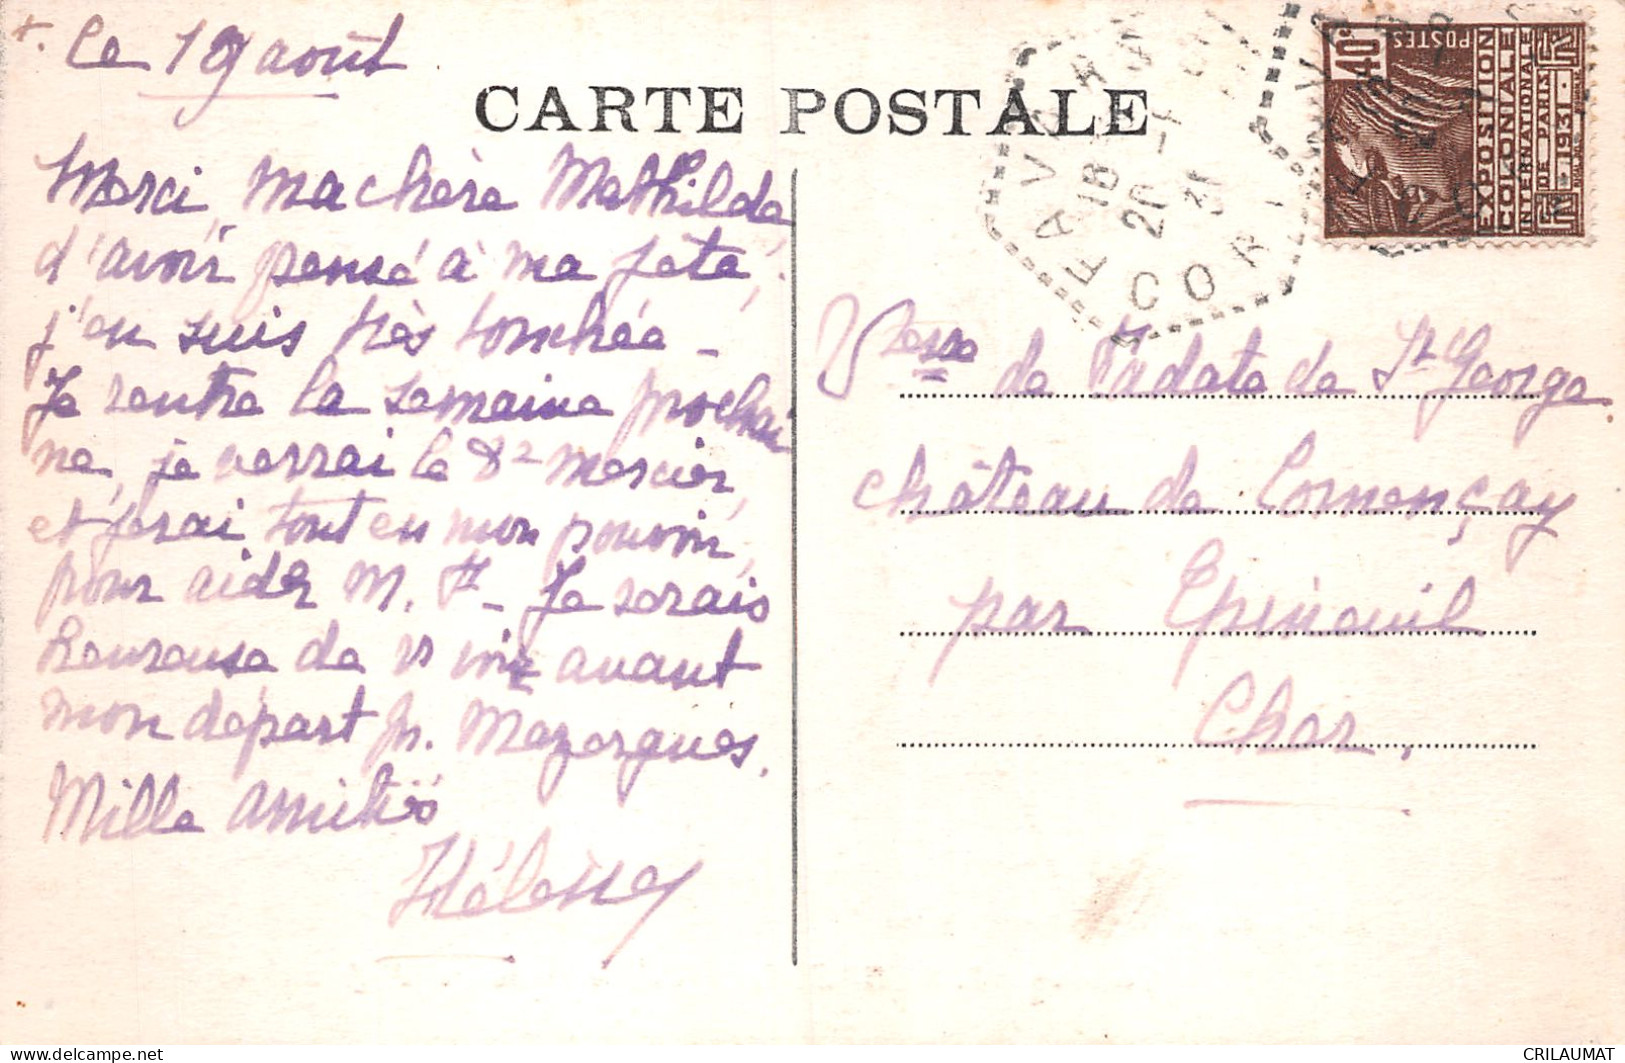 Le 19 août
CARTE POSTALE
Merci, ma chère Mathilde
d'avoir pensé à ma fête,
j'en suis très touchée -
Je rentre la semaine prochai
ne, je verrai le Dr Mercier,
et ferai tout en mon pouvoir,
pour aider M. H - Je serais
heureuse de vs voir avant
mon départ pr. Mazargues.
Mille amitiés
Hélène
Vtesse de Tadate de St George
château de Començay
par Epineuil
Cher.
40c
POSTES
EXPOSITION
COLONIALE
INTERNATIONALE
DE PARIS
1931
FAVARS
CORR
18
20 - 8
31
CRILAUMAT